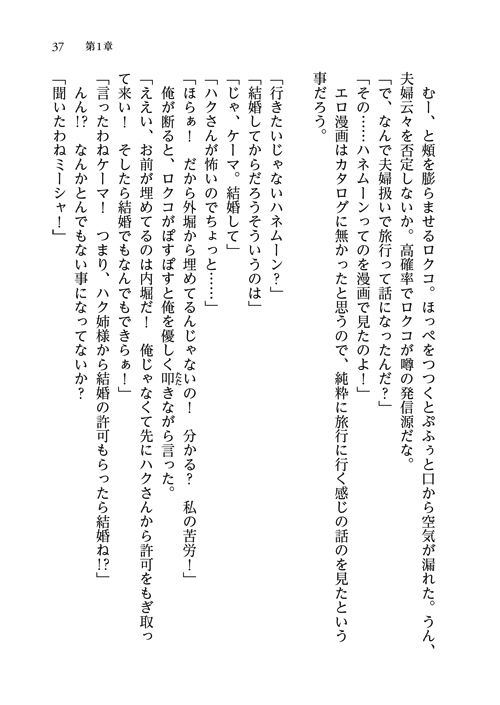 37　第1章
　むー、と頬を膨らませるロクコ。ほっぺをつつくとぷふぅと口から空気が漏れた。うん、
夫婦云々を否定しないか。高確率でロクコが噂の発信源だな。
「で、なんで夫婦扱いで旅行って話になったんだ？」
「その……ハネムーンってのを漫画で見たのよ！」
　エロ漫画はカタログに無かったと思うので、純粋に旅行に行く感じの話のを見たという
事だろう。
「行きたいじゃないハネムーン？」
「結婚してからだろうそういうのは」
「じゃ、ケーマ。結婚して」
「ハクさんが怖いのでちょっと……」
「ほらぁ！　だから外堀から埋めてるんじゃないの！　分かる？　私の苦労！」
　俺が断ると、ロクコがぽすぽすと俺を優しく叩きながら言った。
たた
「ええい、お前が埋めてるのは内堀だ！　俺じゃなくて先にハクさんから許可をもぎ取っ
て来い！　そしたら結婚でもなんでもできらぁ！」
「言ったわねケーマ！　つまり、ハク姉様から結婚の許可もらったら結婚ね!?」
　んん!?　なんかとんでもない事になってないか？
「聞いたわねミーシャ！」